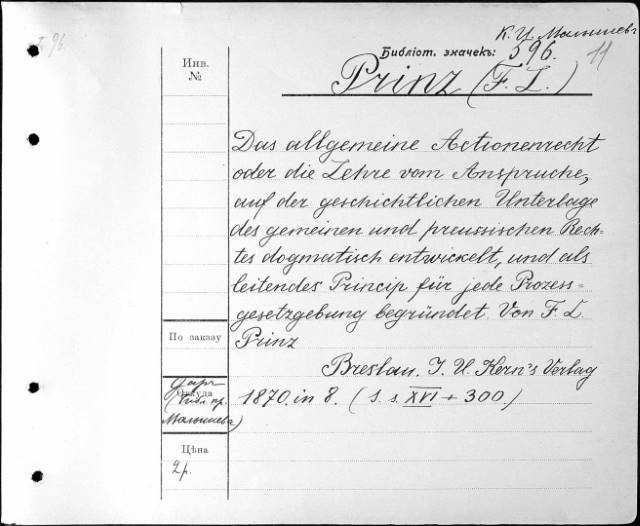 К. И. Малышевъ
Библіот. значекъ: 596. 11
Prinz (F. L.)
Инв.
№
Das allgemeine Actionenrecht
oder die Lehre vom Anspruche,
auf der geschichtlichen Unterlage
des gemeinen und preussischen Rech-
tes dogmatisch entwickelt, und als
leitendes Princip für jede Prozess-
gesetzgebung begründet. Von F. L.
Prinz
Breslau. J. U. Kern's Verlag
1870. in 8. (S. s. XVI + 300.)
По заказу
Откуда
(библ. пр.
Малышева)
Цѣна
2 р.